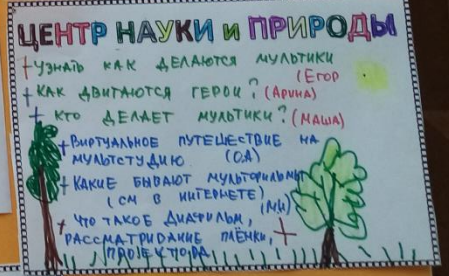 ЦЕНТР НАУКИ И ПРИРОДЫ
+ УЗНАТЬ КАК ДЕЛАЮТСЯ МУЛЬТИКИ
(ЕГОР
+ КАК ДВИГАЮТСЯ ГЕРОИ? (АРИНА)
+ КТО ДЕЛАЕТ МУЛЬТИКИ? (МАША)
+ ВИРТУАЛЬНОЕ ПУТЕШЕСТВИЕ НА
МУЛЬТСТУДИЮ (О.А)
+ КАКИЕ БЫВАЮТ МУЛЬТФИЛЬМЫ
(СМ В ИНТЕРНЕТЕ)
(МИ)
+ ЧТО ТАКОЕ ДИАФИЛЬМ,
РАССМАТРИВАНИЕ ПЛЁНКИ, +
ПРОЕКТОРА